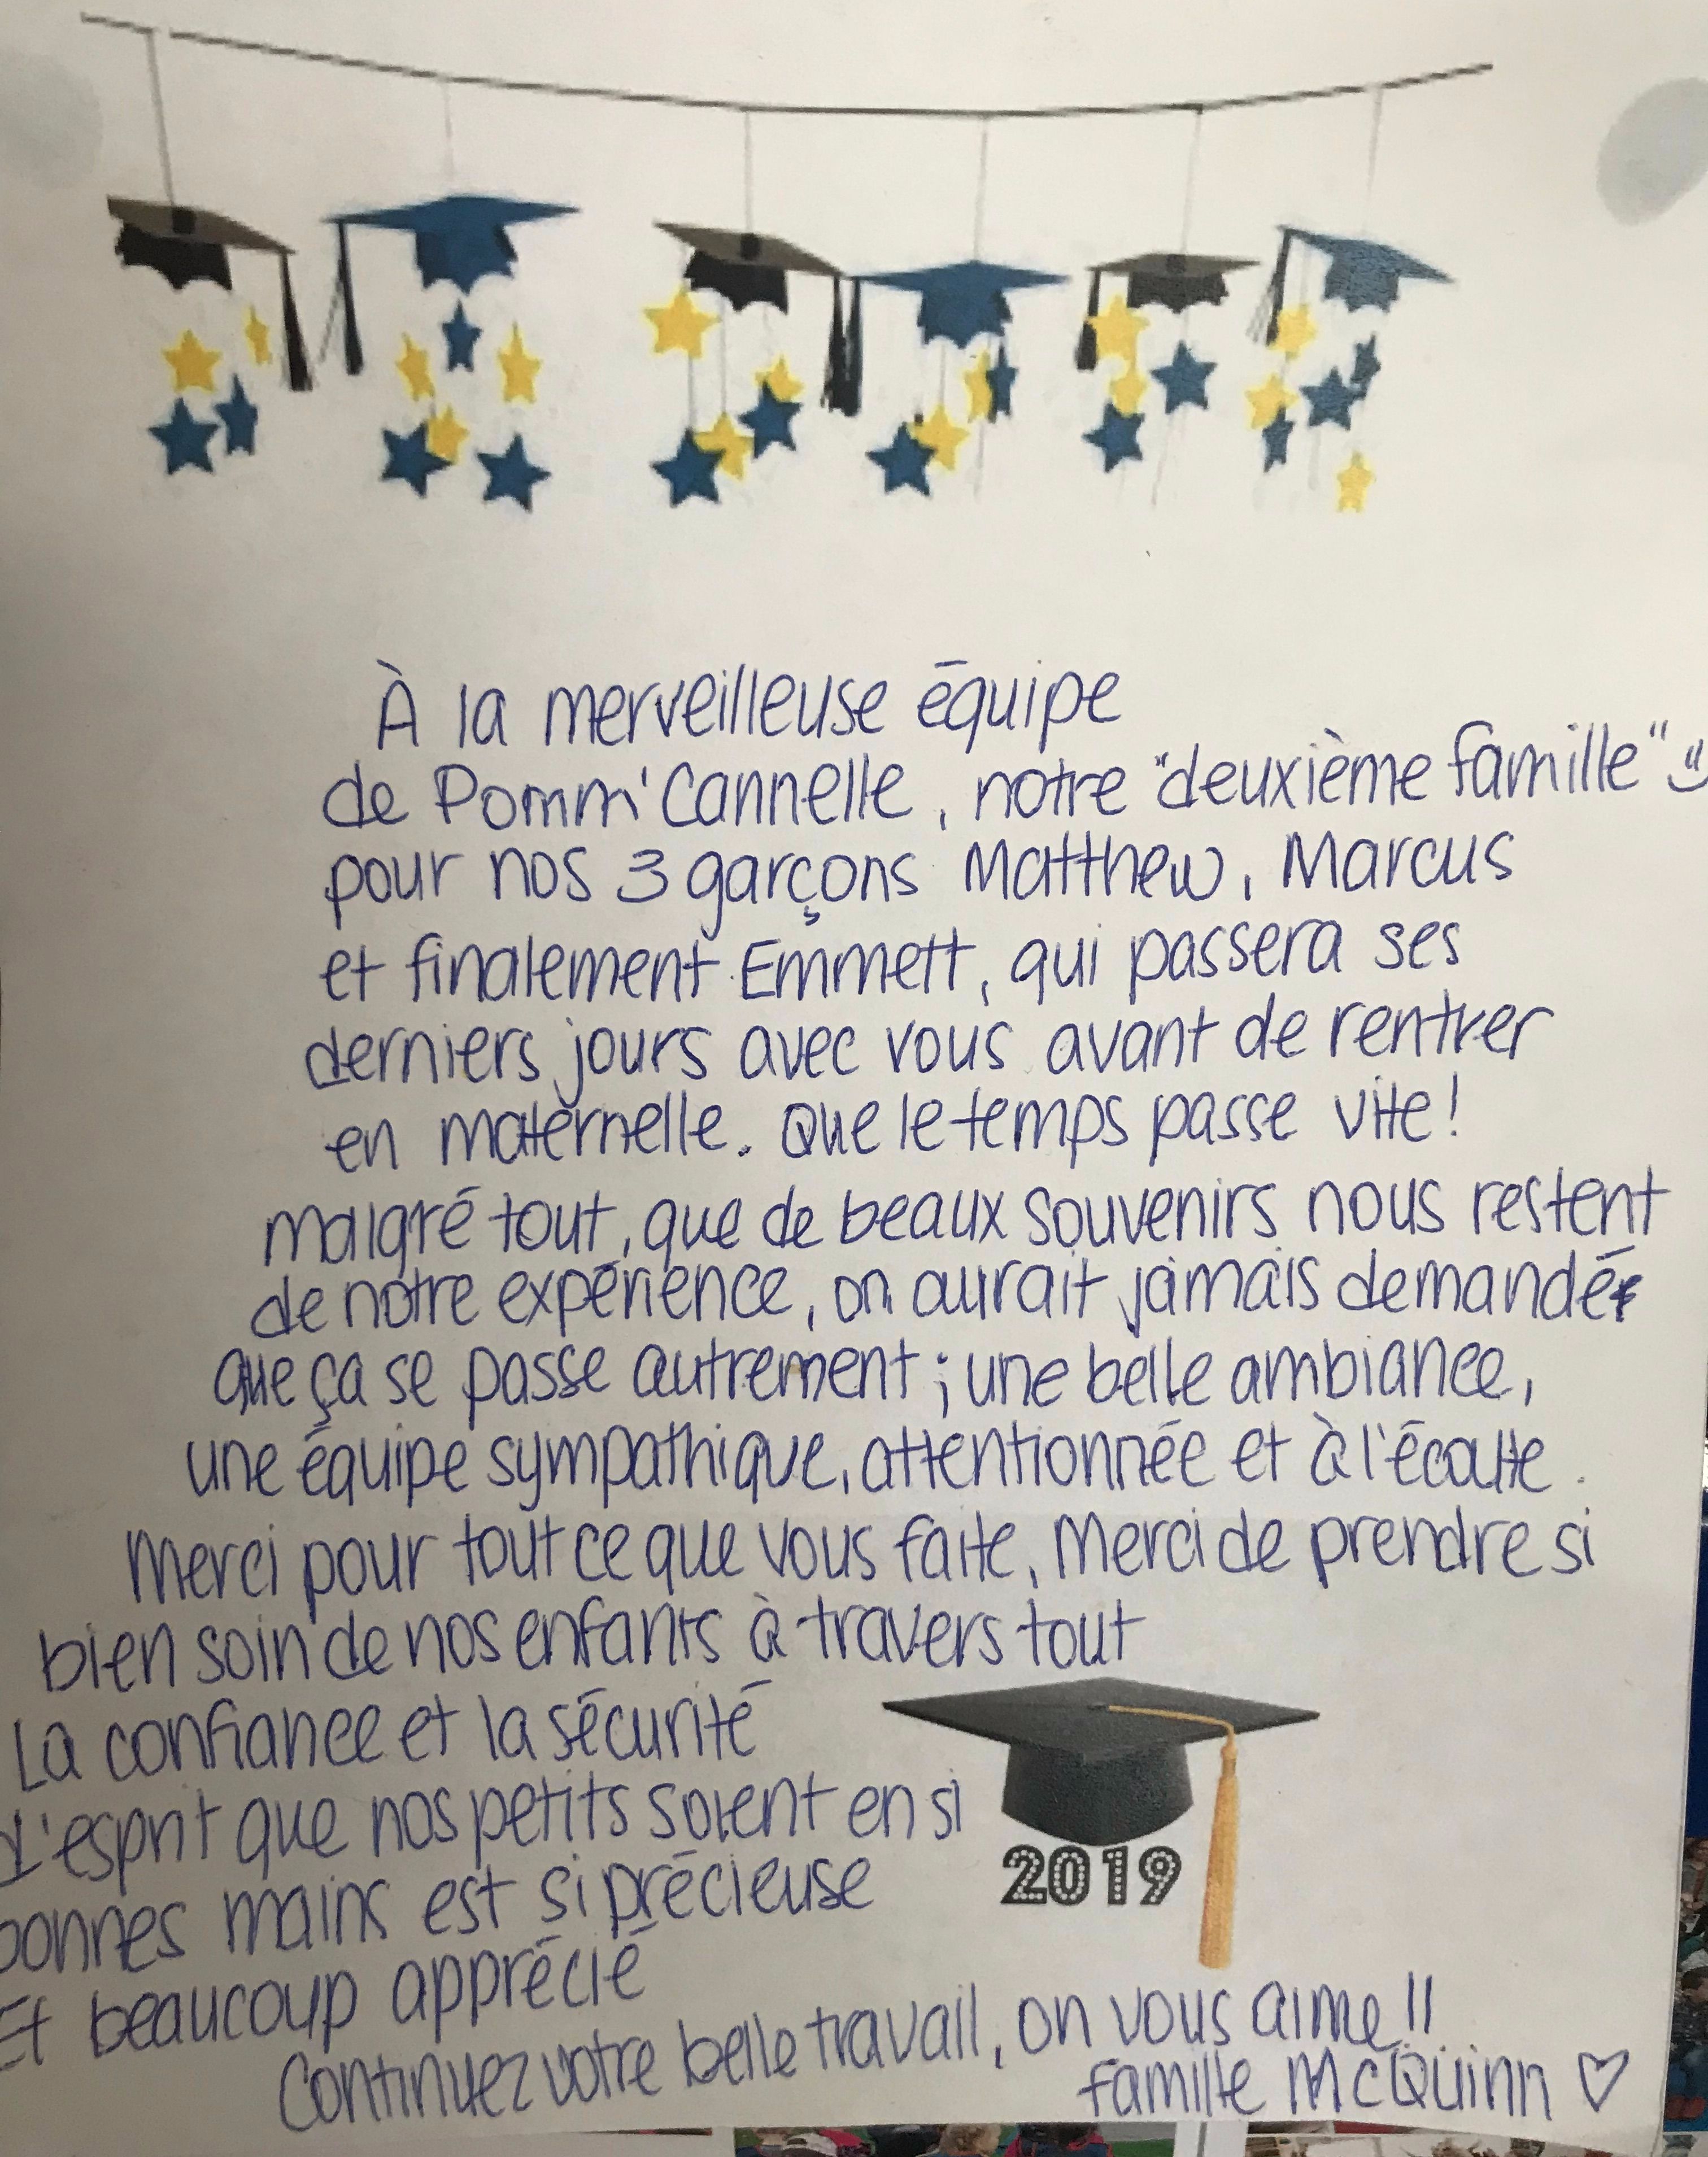 À la merveilleuse équipe
de Pomm'Cannelle, notre "deuxième famille"
pour nos 3 garçons Matthew, Marcus
et finalement Emmett, qui passera ses
derniers jours avec vous avant de rentrer
en maternelle. Que le temps passe vite!
malgré tout, que de beaux souvenirs nous restent
de notre expérience, on aurait jamais demandé
que ça se passe autrement; une belle ambiance,
une équipe sympathique, attentionnée et à l'écoute.
Merci pour tout ce que vous faite, Merci de prendre si
bien soin de nos enfants à travers tout
La confiance et la sécurité
d'esprit que nos petits soient en si
bonnes mains est si précieuse
Et beaucoup apprécié
2019
Continuez votre belle travail, on vous aime!!
famille McQuinn ♡